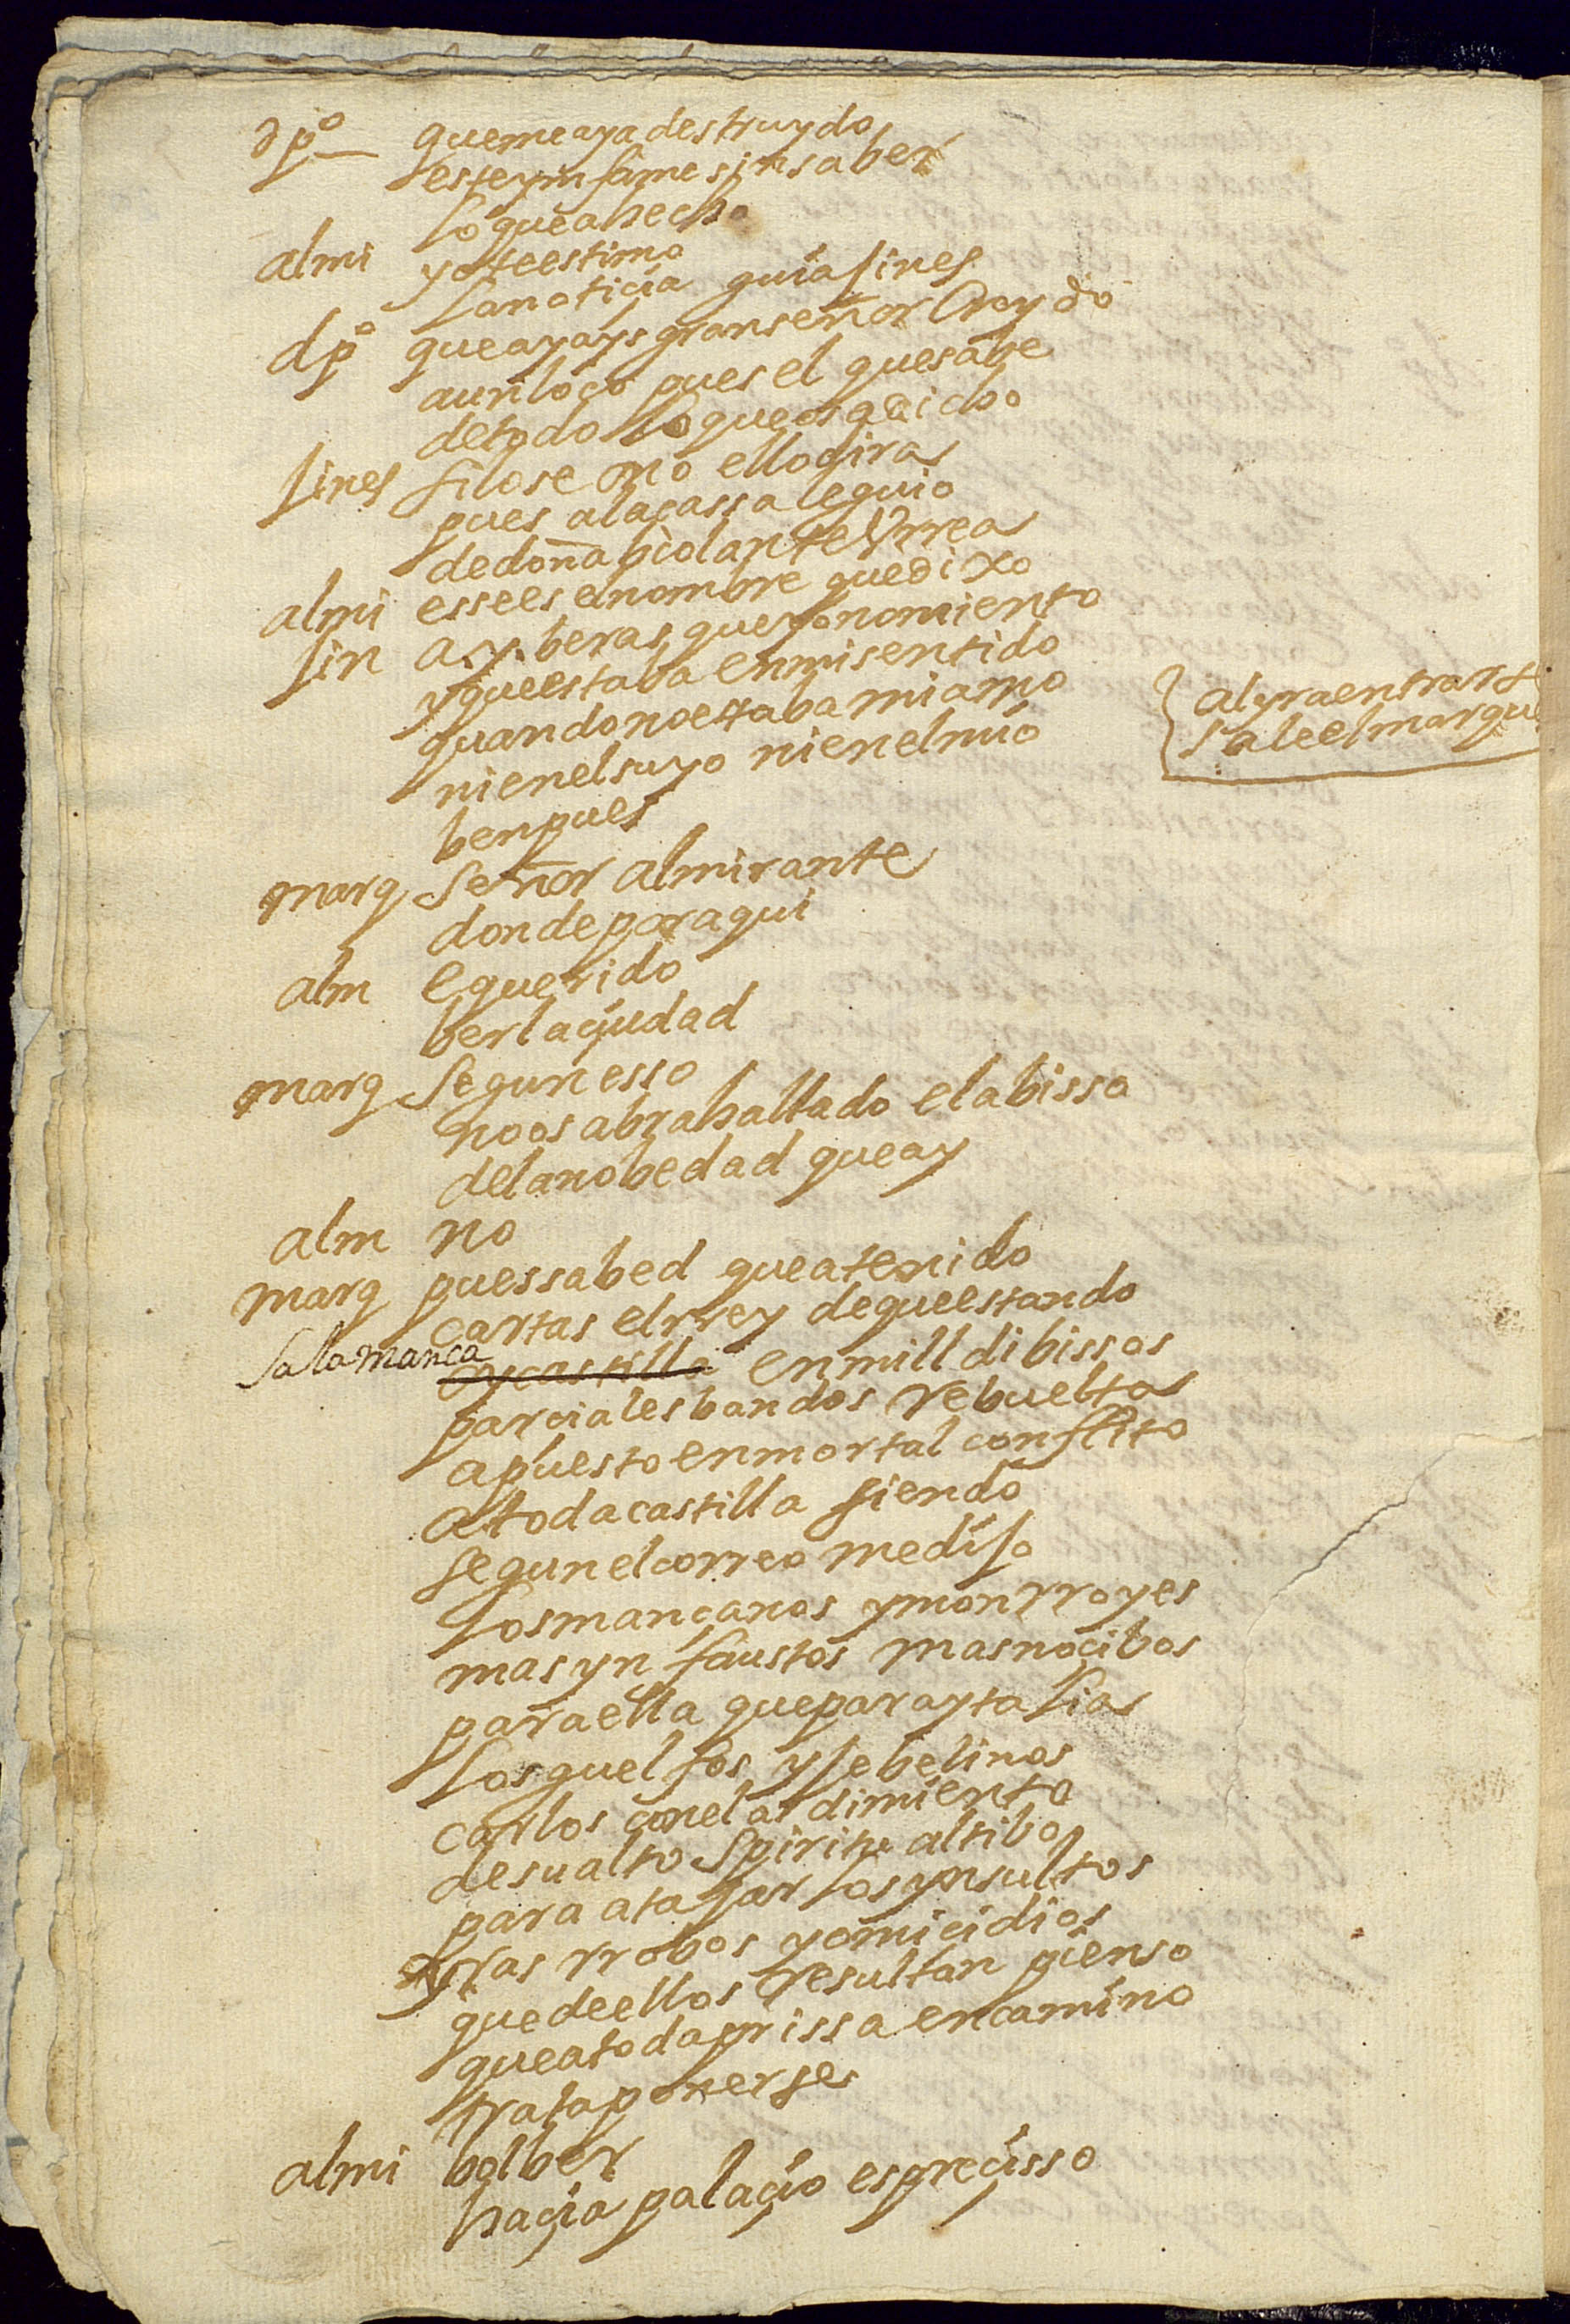 d p.º — quemeaya destruydo
esteynfame sinsaber
loqueahecho
almi yoteestimo
lanoticia guiajines
d p.º queayays granseñor Creydo
aunloco pues el quesabe
detodo loqueosadicho
jines silose mo ellodira
pues alacassa leguio
dedoña biolante Vrrea
almi essees elnombre quedixo
jin ay. beras queyonomiento
yqueestaba enmisentido
quandonoestaba miamo
nienelsuyo nienelmio
benpues
al yraentrarse
saleelmarques
marq Señor almirante
dondeporaqui
alm equerido
berlaciudad
marq Segunesso
noosabrahaltado elabisso
delanobedad queay
alm no
marq puessabed queatenido
cartas elrrey dequeestando
salamanca oycastilla enmill dibissos
parcialesbandos rebuelta
apuestoenmortal conflito
atodacastilla siendo
segunelcorreo medijo
losmançanos ymonrroyes
masynfaustos masnocibos
paraella queparaytalia
losguelfos yjebelinos
carlos conelardimiento
desualto Spiritu altibo
para atajar losynsultos
rrobos yomicidios
quedeellos resultan pienso
queatodaprissa encamino
trataponerse
almi bolber
hacia palacio esprecisso